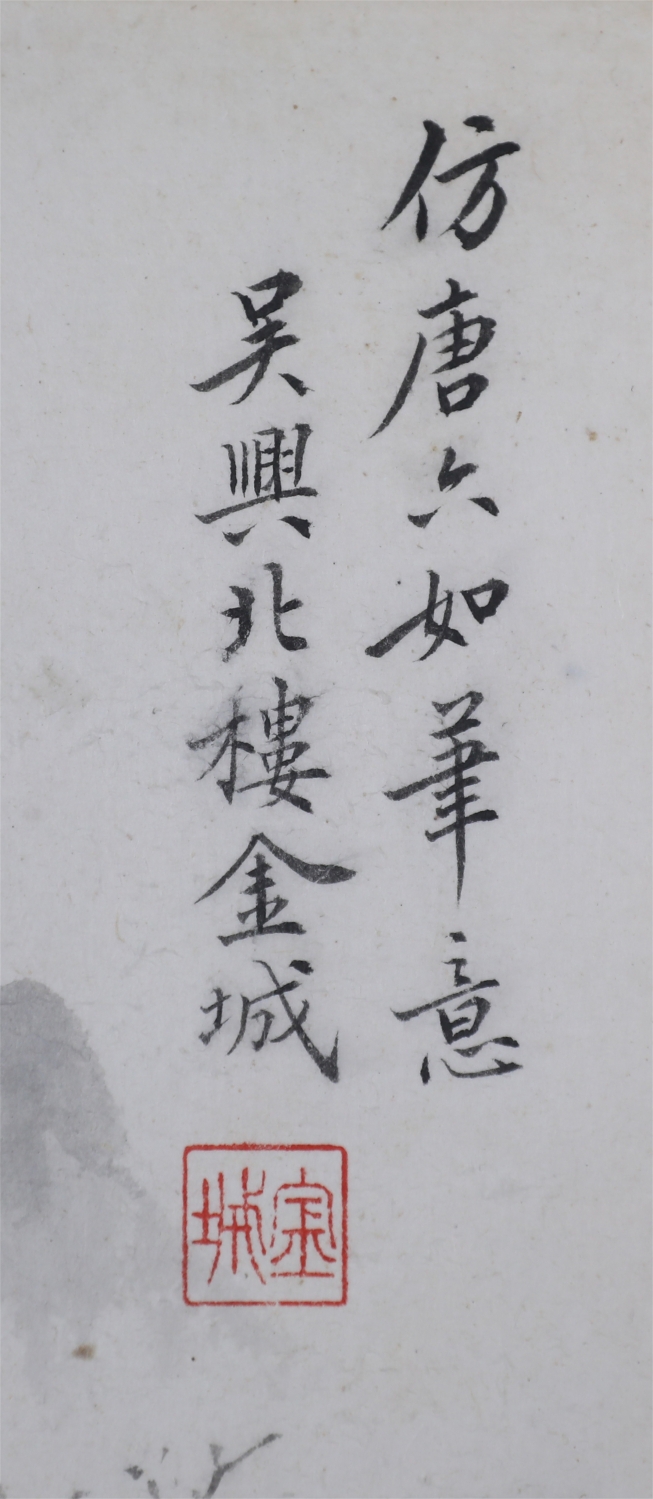 仿唐六如筆意
吳興北樓金城
金城